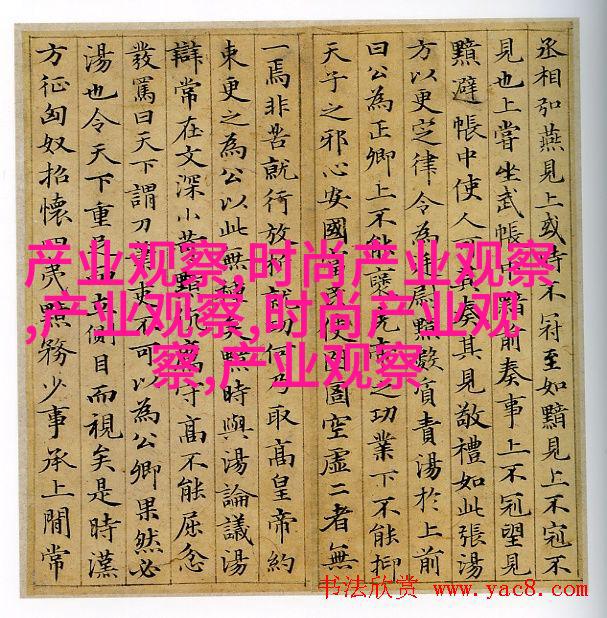 丞相弘燕見上或時不冠至如黯見上不冠不
見也上嘗坐武帳中黯前奏事上不冠望見
黯避帳中使人可其奏其見敬禮如此張湯
方以更定律令為廷尉黯數質責湯於上前
曰公為正卿上不能襃先帝之功業下不能抑
天子之邪心安國富民使囹圄空虛二者無
一焉非苦就行放析就功何乃取高皇帝約
束更之為公以此無種矣黯時與湯論議湯
辯常在文深小苛黯伉厲守高不能屈忿
發罵曰天下謂刀筆吏不可以為公卿果然必
湯也令天下重足而立側目而視矣是時漢
方征匈奴招懷四夷黯務少事承上間常
产业观察,时尚产业观察
,产业观察,时尚产业观
察,产业观察
书法欣赏 www.yac8.com